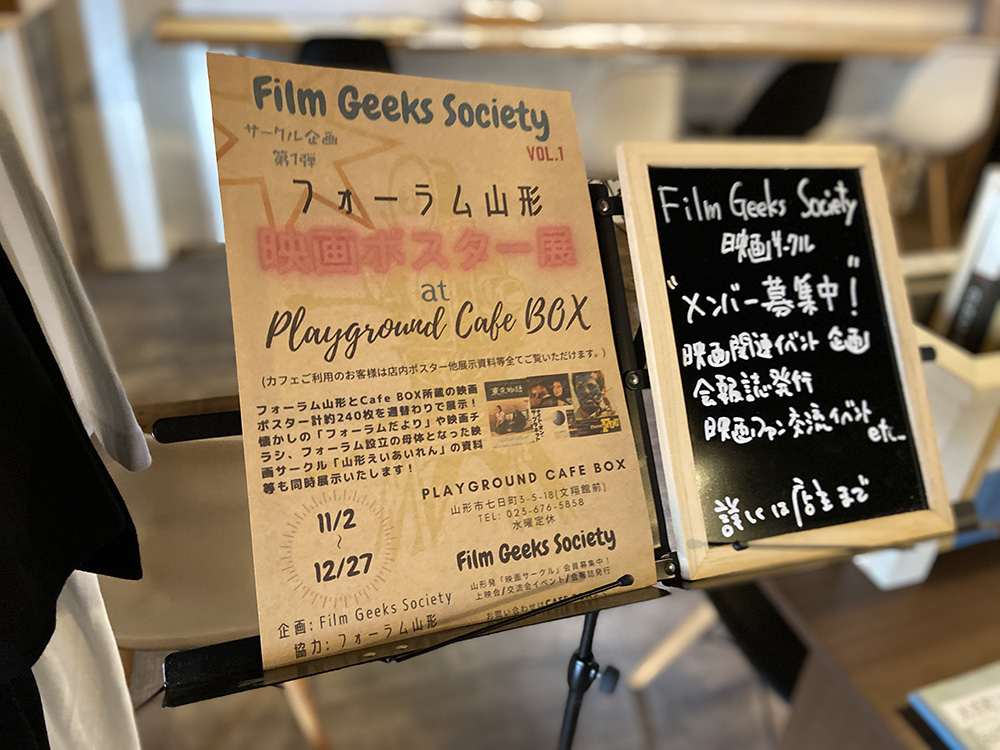 Film Geeks Society
VOL.1
サークル企画
第1弾
フォーラム山形
映画ポスター展
at
Playground Cafe BOX
(カフェご利用のお客様は店内ポスター他展示資料等全てご覧いただけます。)
フォーラム山形とCafe BOX所蔵の映画
ポスター計約240枚を週替わりで展示！
懐かしの「フォーラムだより」や映画チ
ラシ、フォーラム設立の母体となった映
画サークル「山形えいあいれん」の資料
等も同時展示いたします！
東京物語
11/2
～
12/27
PLAYGROUND CAFE BOX
山形市七日町3-5-18(文翔館前)
TEL: 023-676-5858
水曜定休
Film Geeks Society
山形発「映画サークル」会員募集中！
上映会/交流会イベント/会報誌発行
お問い合わせはCAFE
企画: Film Geeks Society
協力: フォーラム山形
Film Geeks Society
映画サークル
"メンバー募集中！"
映画関連イベント企画
会報誌発行
映画ファン交流イベント
etc...
詳しくは店主まで